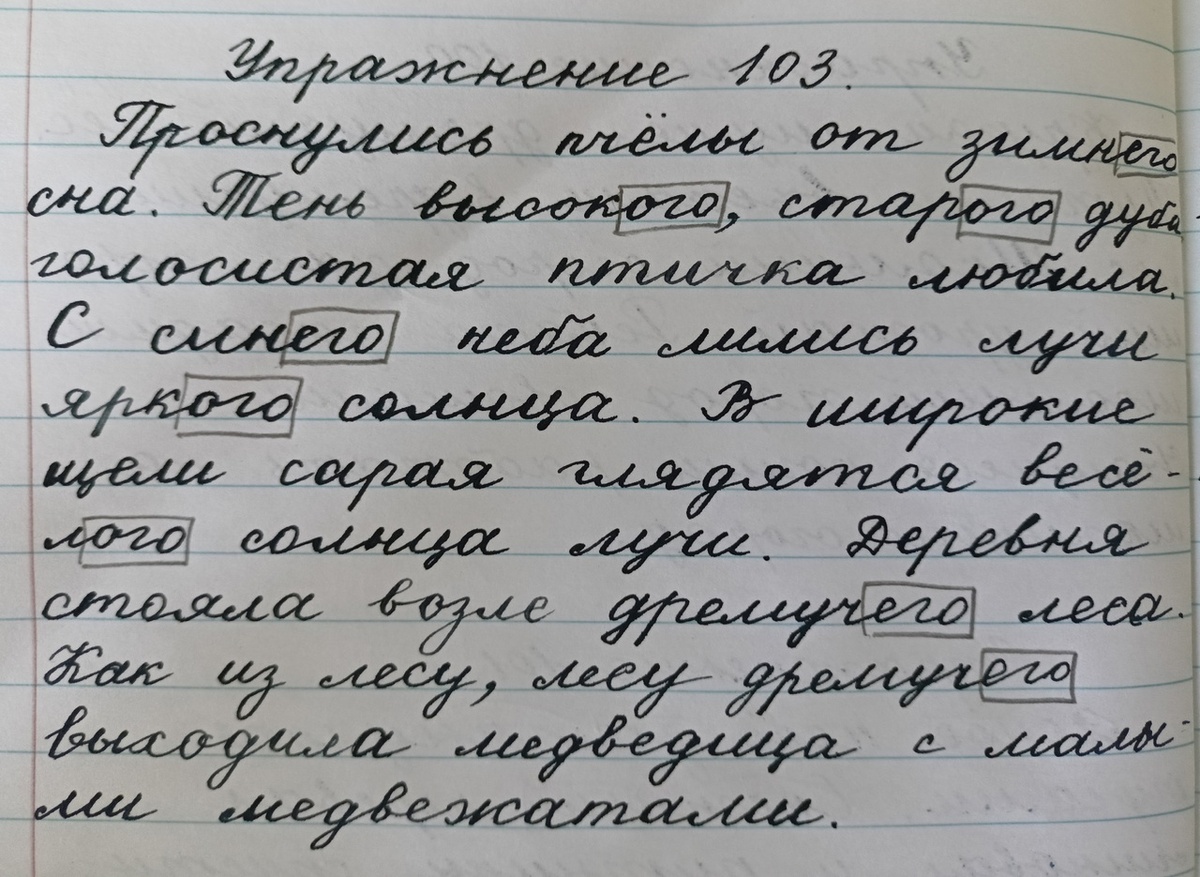 Упражнение 103.
Проснулись пчёлы от зимнего
сна. Тень высокого, старого дуба
голосистая птичка любила.
С синего неба лились лучи
яркого солнца. В широкие
щели сарая глядятся весё-
лого солнца лучи. Деревня
стояла возле дремучего леса.
Как из лесу, лесу дремучего
выходила медведица с малы-
ми медвежатами.